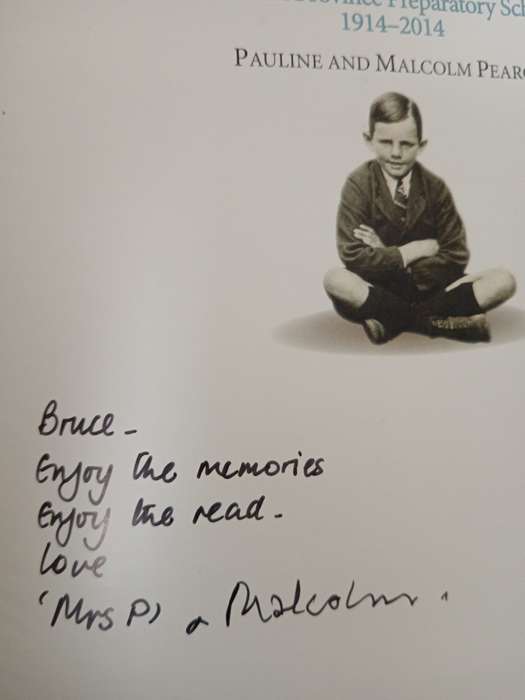 Preparatory
1914–2014
PAULINE AND MALCOLM
Bruce -
Enjoy the memories
Enjoy the read -
Love
'Mrs P' & Malcolm.